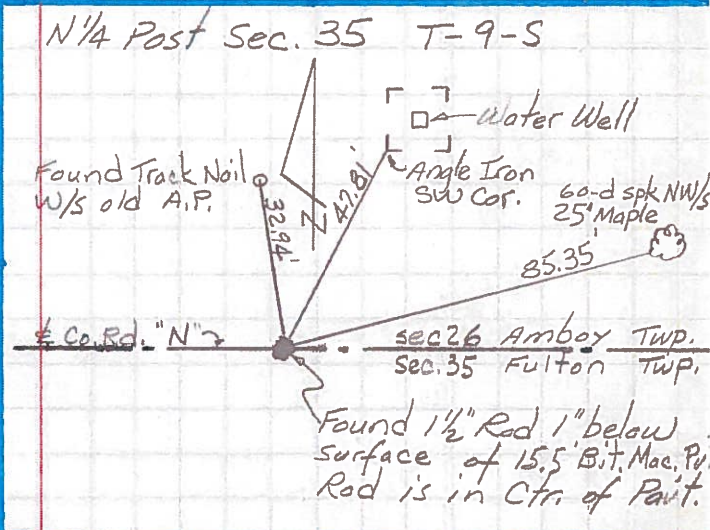 N 1/4 Post Sec. 35 T-9-S
Water Well
Found Track Nail
W/s old A.P.
32.94'
N
47.81'
Angle Iron
SW Cor.
60-d spk NW/s
25" Maple
85.35'
℄ Co. Rd. "N"
sec 26 Amboy Twp.
Sec. 35 Fulton Twp.
Found 1 1/2" Rod 1" below
Surface of 15.5 Bit. Mac.
Rod is in Ctr. of Pav't.